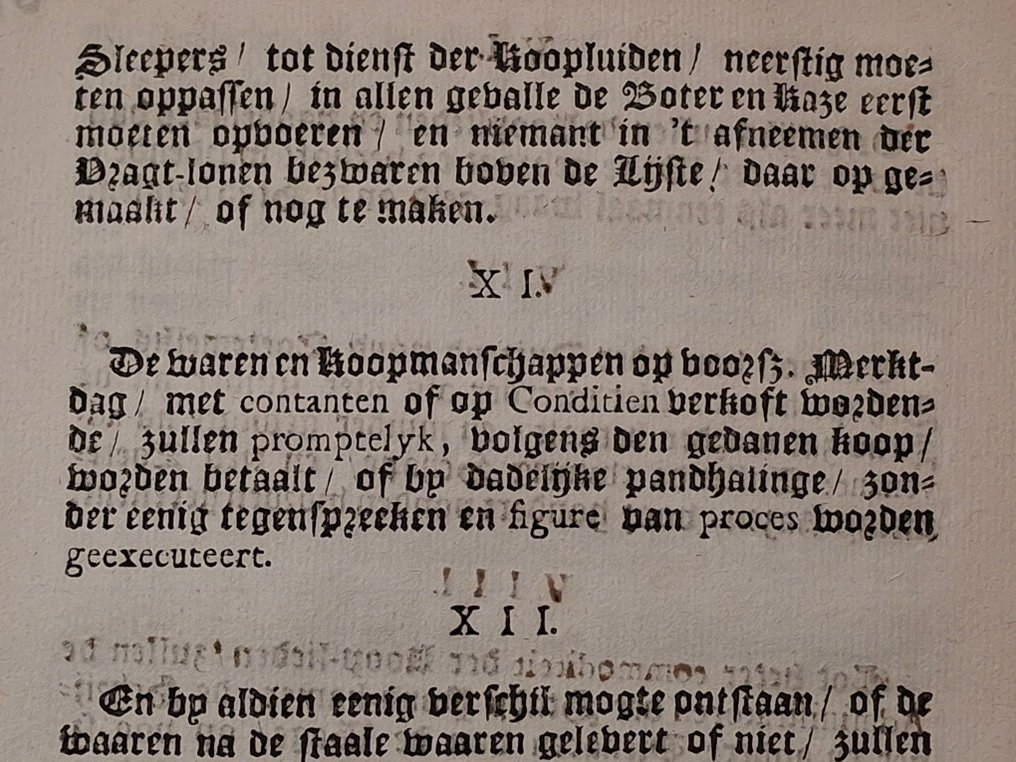 Sleepers / tot dienst der Koopluiden / neerstig moe-
ten oppassen / in allen gevalle de Boter en Kaze eerst
moeten opvoeren / en niemant in 't afneemen der
Vragt-lonen bezwaren boven de Lijste / daar op ge-
maakt / of nog te maken.
X I.
De waren en Koopmanschappen op voorsz. Merkt-
dag / met contanten of op Conditien verkoft worden-
de / zullen promptelyk, volgens den gedanen koop /
worden betaalt / of by dadelijke pandhalinge / zon-
der eenig tegenspreeken en figure van proces worden
geexecuteert.
X I I.
En by aldien eenig verschil mogte ontstaan / of de
waaren na de staale waaren gelevert of niet / zullen